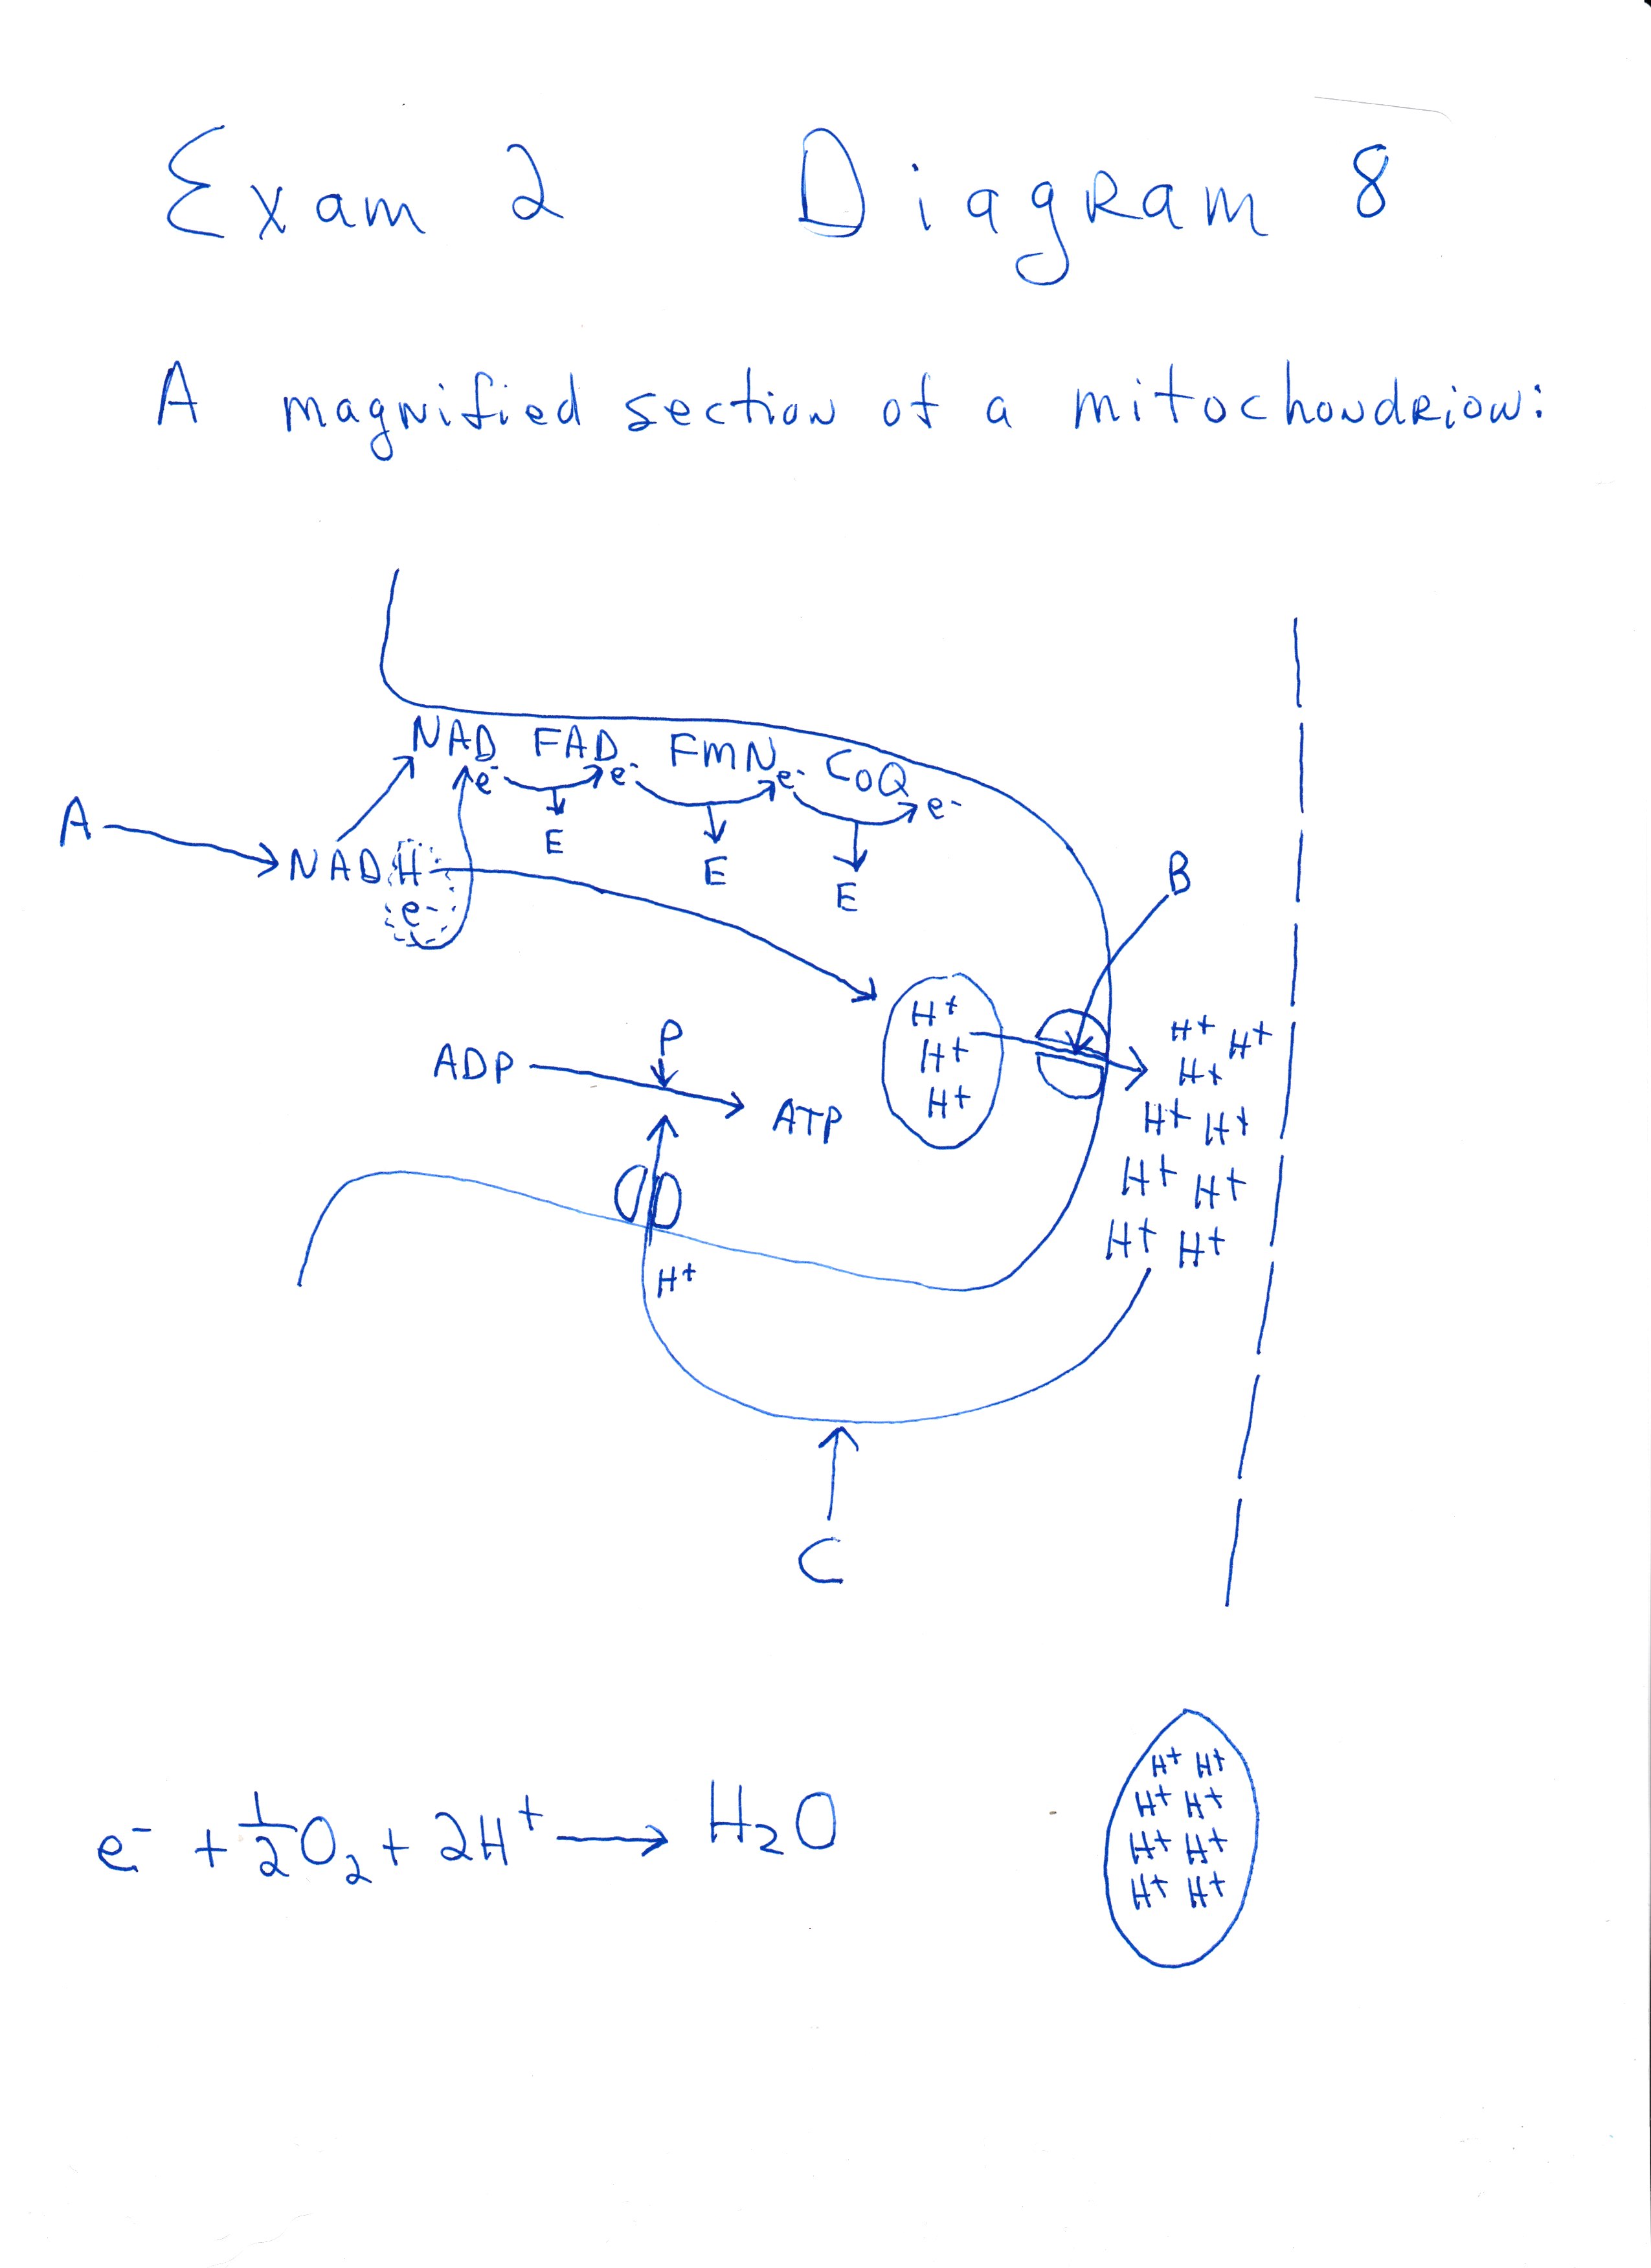 Exam 2 Diagram 8
A magnified section of a mitochondrion:
NAD FAD FMN CoQ
e- e- e- e-
A
E
E
E
NADH
e-
B
H+
H+
H+
H+ H+
H+
H+ H+
H+ H+
H+ H+
P
ADP
ATP
H+
C
e- + 1/2 O2 + 2H+ → H2O
H+ H+
H+ H+
H+ H+
H+ H+